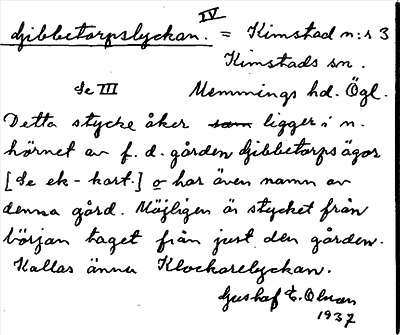 IV
Gibbetorpslyckan. = Kimstad n:s 3
Kimstads sn.
Se III Memmings hd. Ögl.
Detta stycke åker som ligger i n.
hörnet av f. d. gården Gibbetorps ägor
[Se ek-kart.] o har även namn av
denna gård. Möjligen är stycket från
början taget från just den gården.
Kallas ännu Klockarelyckan.
Gustaf E. Olman
1937